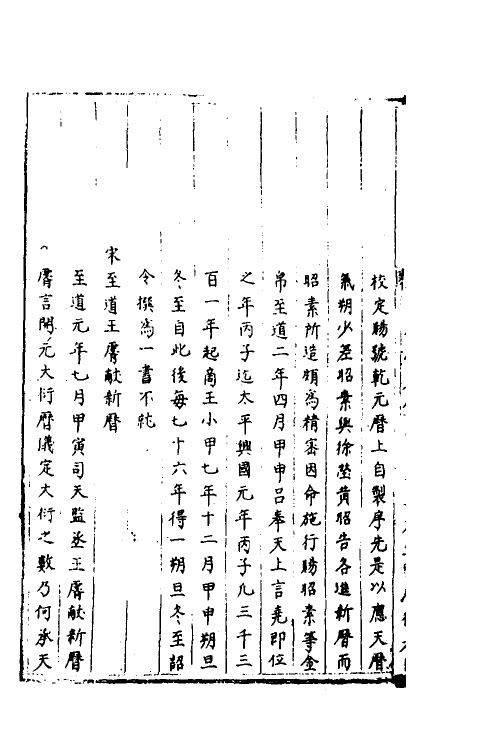 校定勝號乾元曆上自製序先是以應天曆
氣朔少差昭素與徐瑩黃昭告各進新曆而
昭素所造頗為精密因命施行勝昭素等金
帛至道二年四月甲申呂奉天上言堯即位
之年丙子迄太平興國元年丙子凡三千三
百一年起商王小甲七年十二月甲申朔旦
冬至自此後每七十六年得一朔旦冬至詔
令撰為一書不純
宋至道王睿獻新曆
至道元年七月甲寅司天監丞王睿獻新曆
睿言開元大衍曆議定大衍之數乃何承天